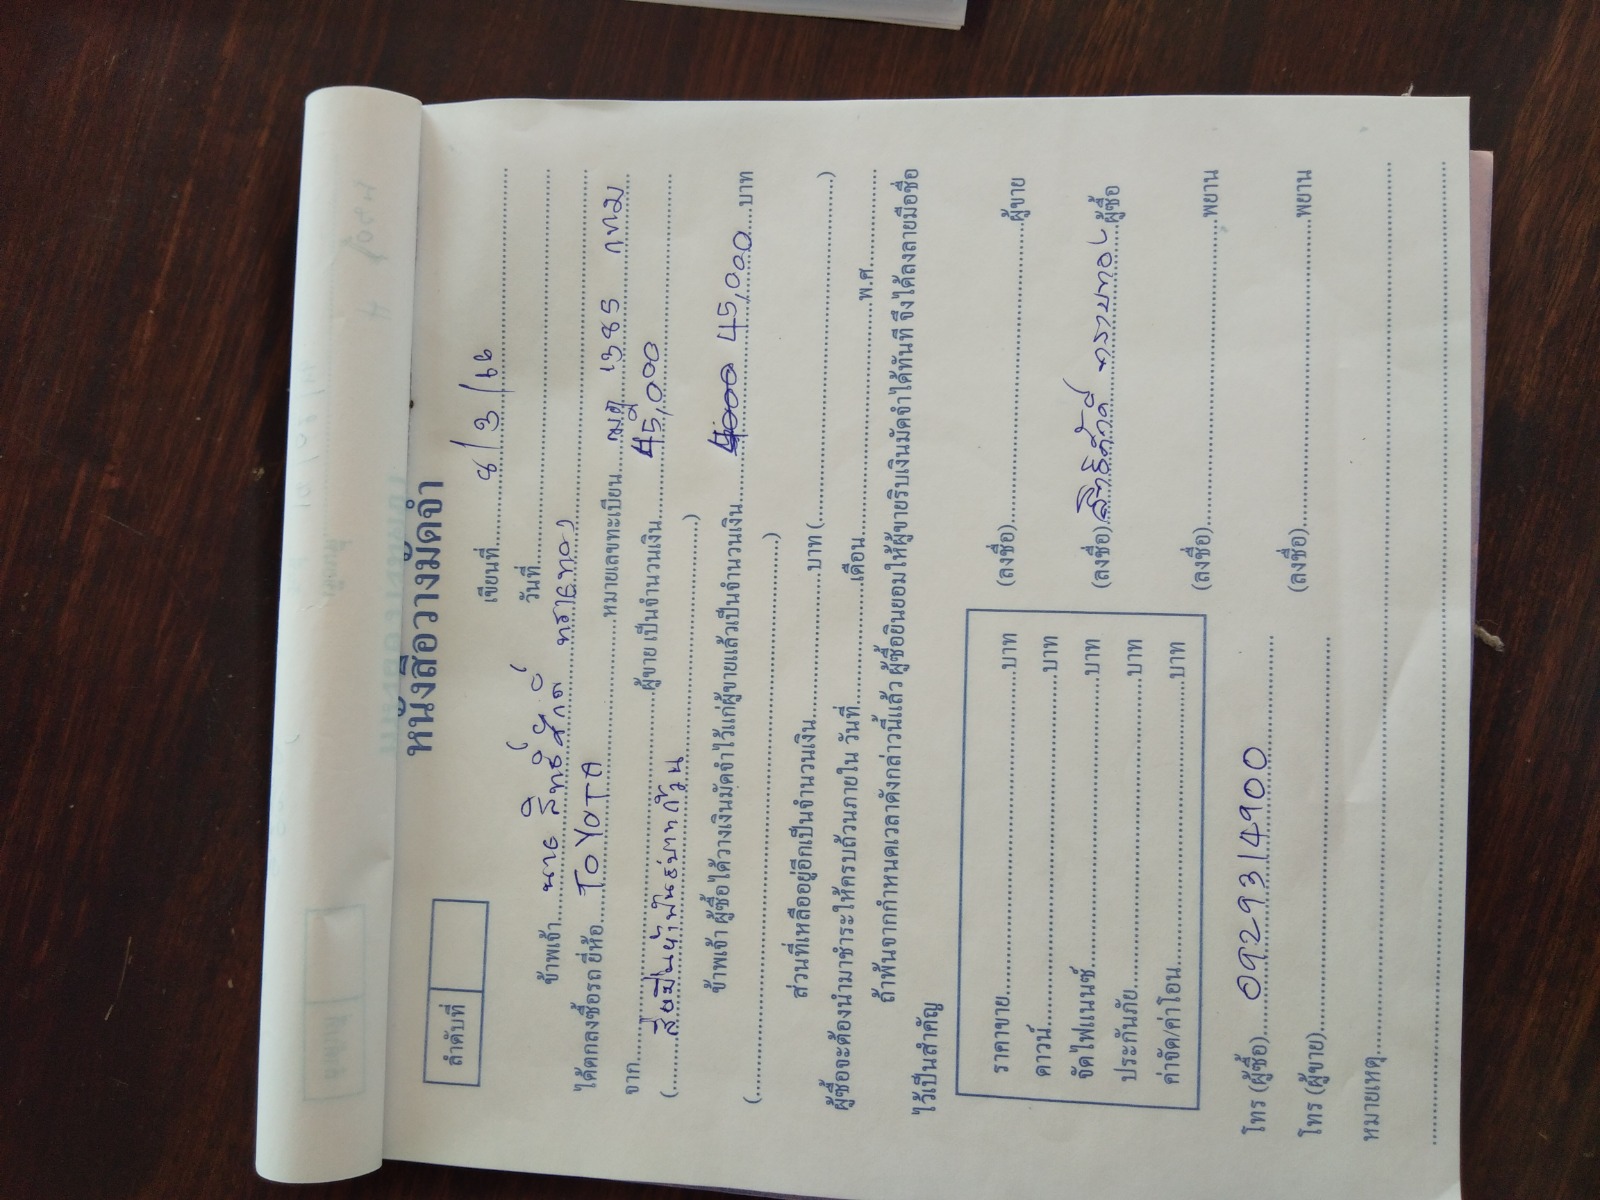 หนังสือวางมัดจำ
ลำดับที่
เขียนที่ 8/3/66
วันที่
ข้าพเจ้า นาย สิทธิ์ศักดิ์ ทรายทอง
ได้ตกลงซื้อรถ ยี่ห้อ TOYOTA หมายเลขทะเบียน 1385 กทม
จาก ผู้ขาย เป็นจำนวนเงิน 45,000
(สี่หมื่นห้าพันบาทถ้วน)
ข้าพเจ้า ผู้ซื้อ ได้วางเงินมัดจำไว้แก่ผู้ขายแล้วเป็นจำนวนเงิน 45,000 บาท
( )
ส่วนที่เหลืออยู่อีกเป็นจำนวนเงิน บาท ( )
ผู้ซื้อจะต้องนำมาชำระให้ครบถ้วนภายใน วันที่ เดือน พ.ศ.
ถ้าพ้นจากกำหนดเวลาดังกล่าวนี้แล้ว ผู้ซื้อยินยอมให้ผู้ขายริบเงินมัดจำได้ทันที จึงได้ลงลายมือชื่อ
ไว้เป็นสำคัญ
ราคาขาย บาท
ดาวน์ บาท
จัดไฟแนนซ์ บาท
ประกันภัย บาท
ค่าจัด/ค่าโอน บาท
(ลงชื่อ) ผู้ขาย
(ลงชื่อ) สิทธิ์ศักดิ์ ทรายทอง ผู้ซื้อ
(ลงชื่อ) พยาน
(ลงชื่อ) พยาน
โทร (ผู้ซื้อ) 0929314900
โทร (ผู้ขาย)
หมายเหตุ